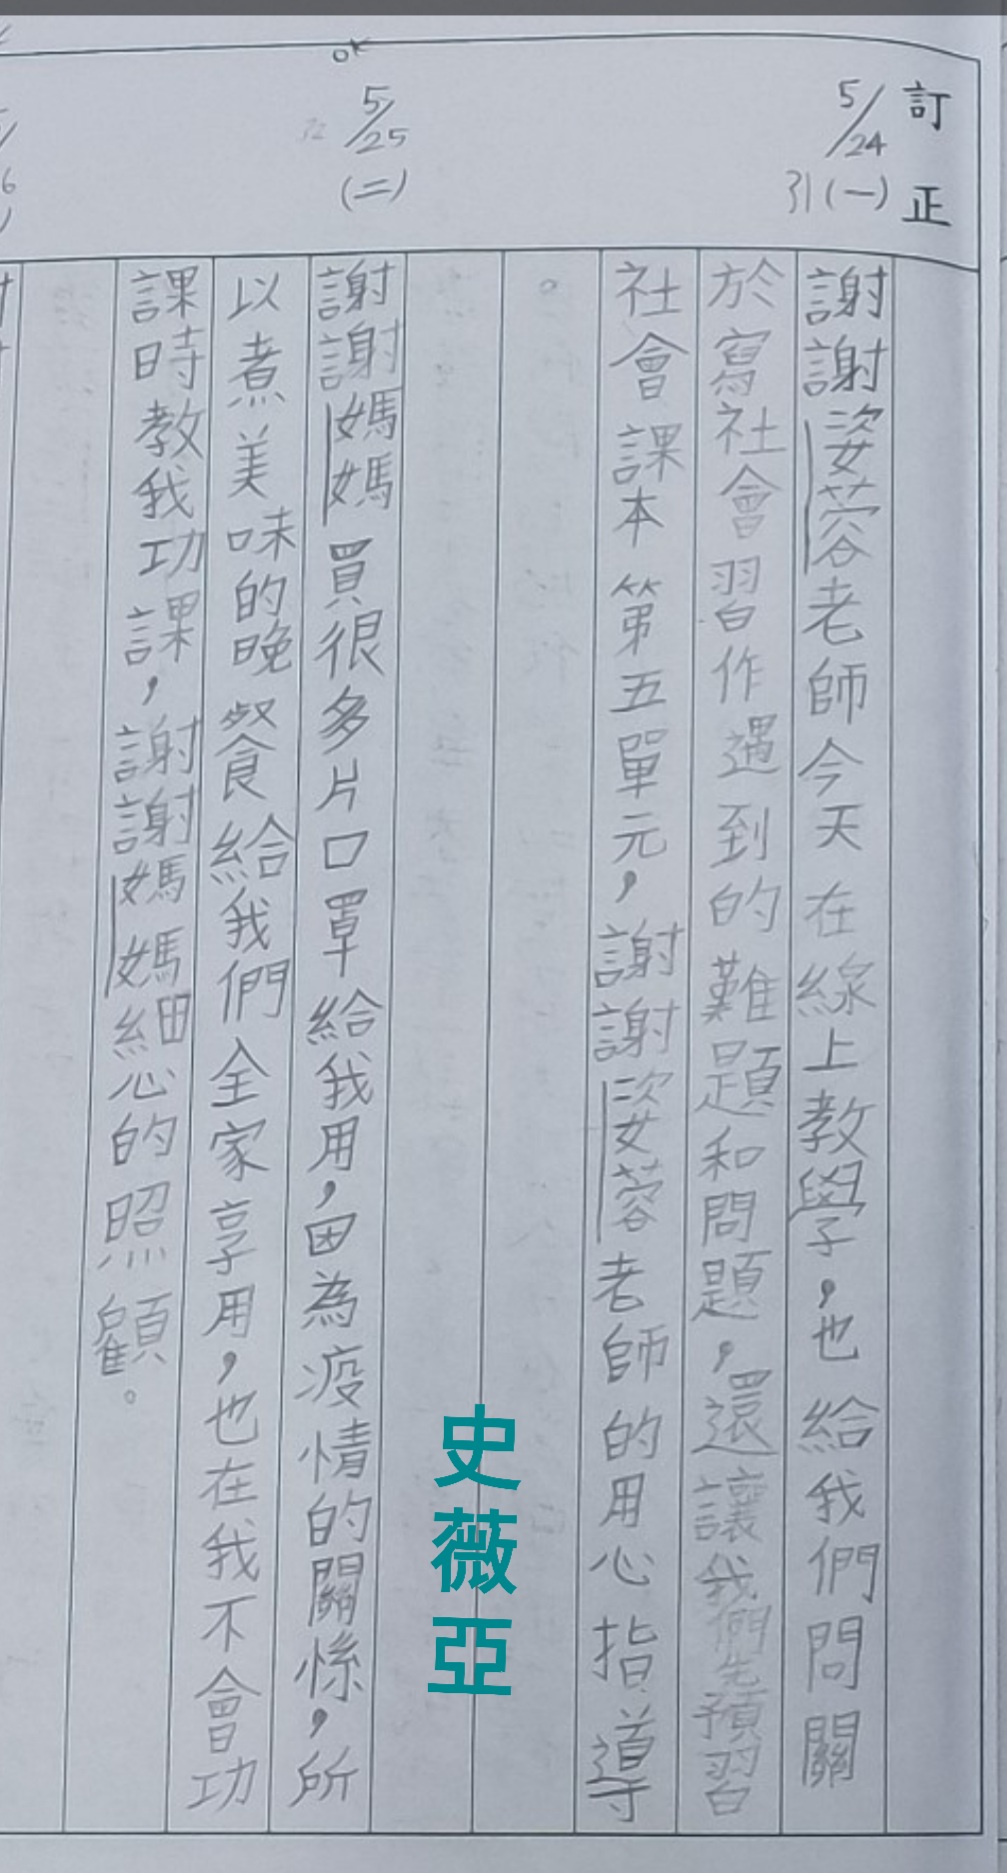 訂正
5/24
31(一)
謝謝姿蓉老師今天在線上教學，也給我們問關
於寫社會習作遇到的難題和問題，還讓我們先預習
社會課本第五單元，謝謝姿蓉老師的用心指導
。
OK
5/25
(二)
謝謝媽媽買很多片口罩給我用，因為疫情的關係，所
以煮美味的晚餐給我們全家享用，也在我不會功
課時教我功課，謝謝媽媽細心的照顧。
史薇亞